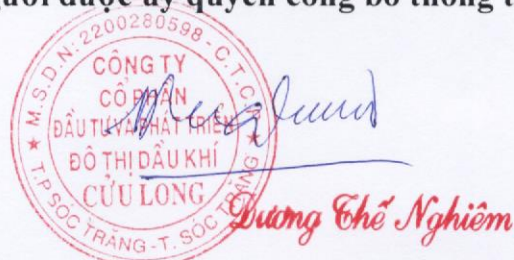 gười được ủy quyền công bố thông t
M.S.D.N: 2200280598 - C.T.C.P
CÔNG TY
CỔ PHẦN
ĐẦU TƯ VÀ PHÁT TRIỂN
ĐÔ THỊ DẦU KHÍ
CỬU LONG
T.P SÓC TRĂNG - T. SÓC TRĂNG
Dương Thế Nghiêm